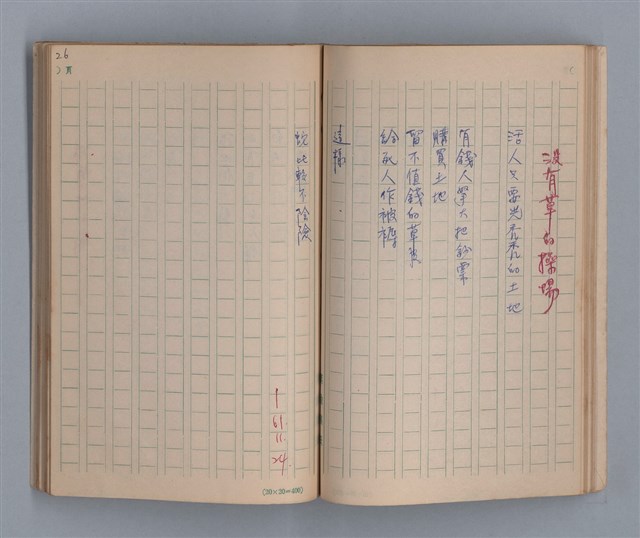 沒有草的操場
活人只要光秃秃的土地
有錢人掌大把鈔票
購買土地
留不值錢的草皮
給死人作被褥
這樣
就比較不陰險
1
61.
11.
24.
26
頁
(20×20=400)